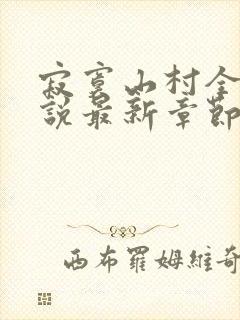 寂寞山村全
說最新章節
西布羅姆維奇